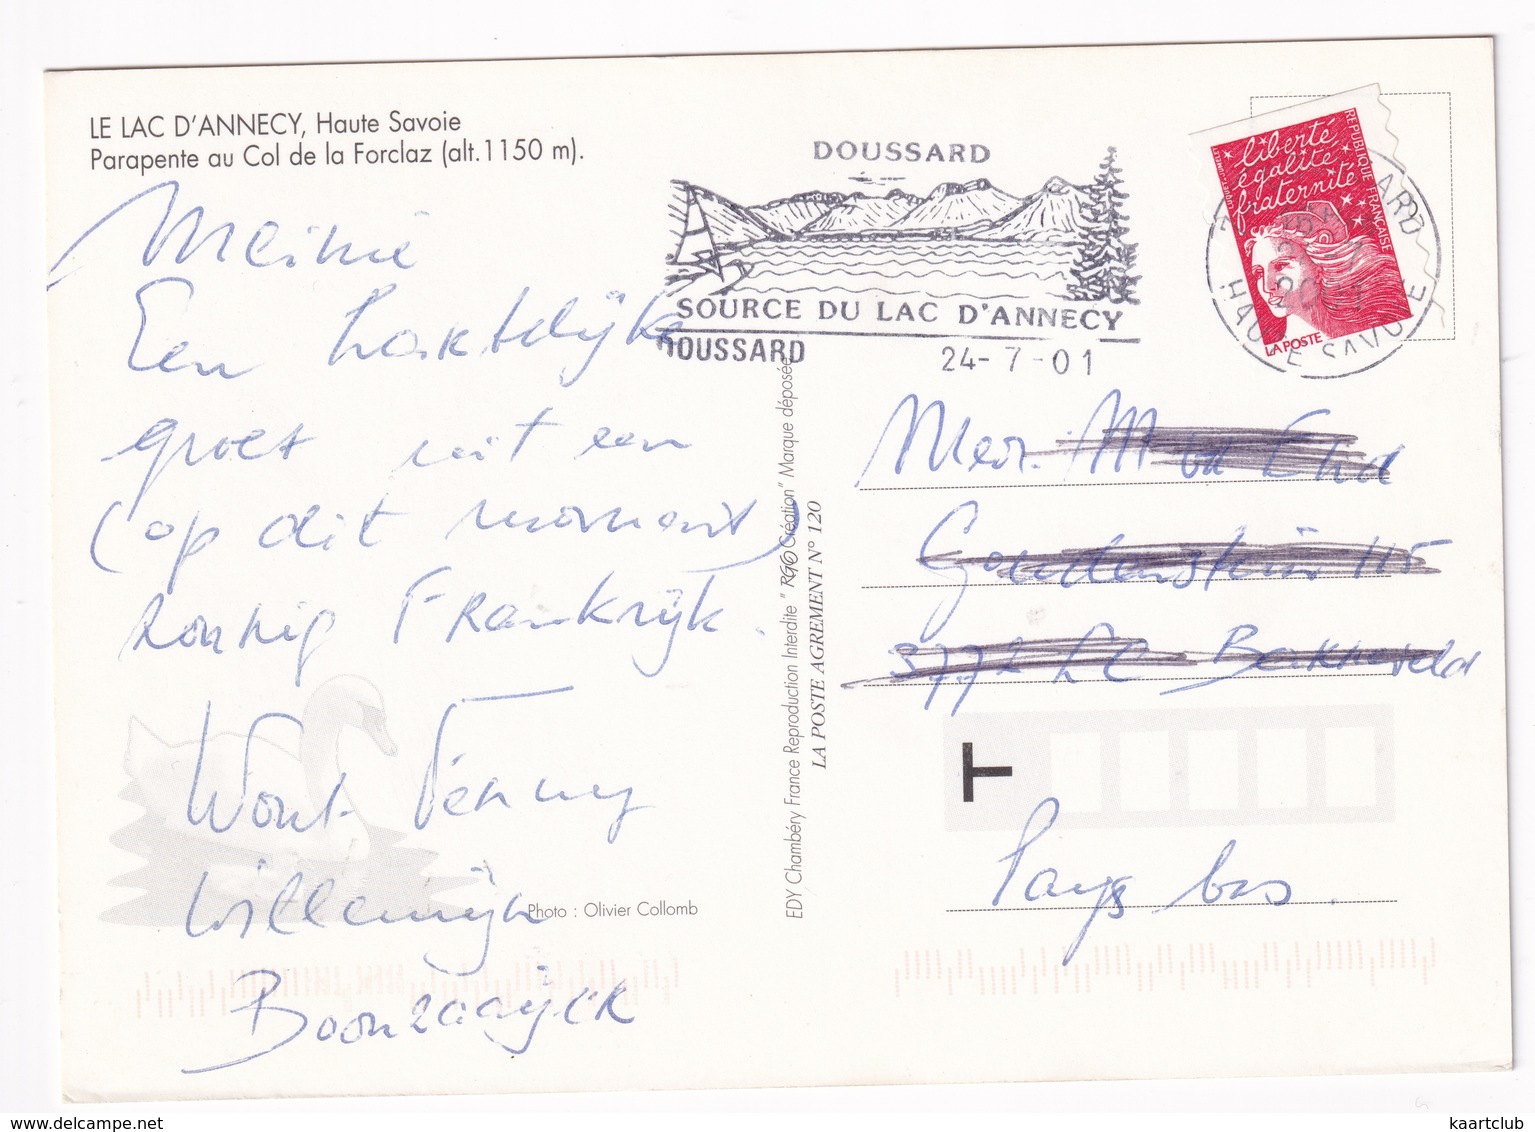 LE LAC D'ANNECY, Haute Savoie
Parapente au Col de la Forclaz (alt.1150 m).
Meinie
Een hartelijke
groet uit een
(op dit moment)
zonnig Frankrijk.
Wout Jenny
Willemijn
Boonzaaijer
Photo : Olivier Collomb
EDY Chambéry France Reproduction Interdite "RGO Création" Marque déposée
LA POSTE AGREMENT N° 120
DOUSSARD
SOURCE DU LAC D'ANNECY
DOUSSARD 24-7-01
liberté
égalité
fraternité
REPUBLIQUE FRANÇAISE
LA POSTE
2001
HAUTE SAVOIE
Mevr.
115
3772
Pays bas.
T
kaartclub